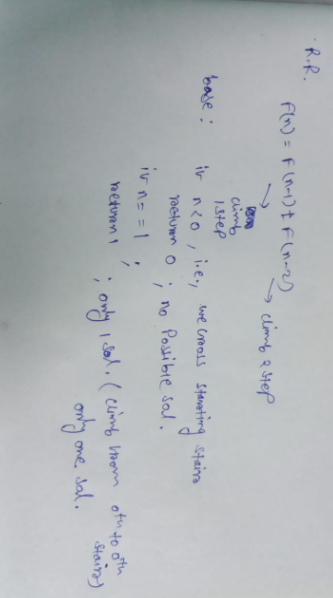 . R.R.
F(n) = F(n-1) + F(n-2)
climb 1 step
climb 2 step
base : if n<0, i.e., we cross starting stairs
return 0 ; no possible sol.
if n == 1 ;
return 1 ; only 1 sol. (climb from 0th to 0th stairs)
only one sol.